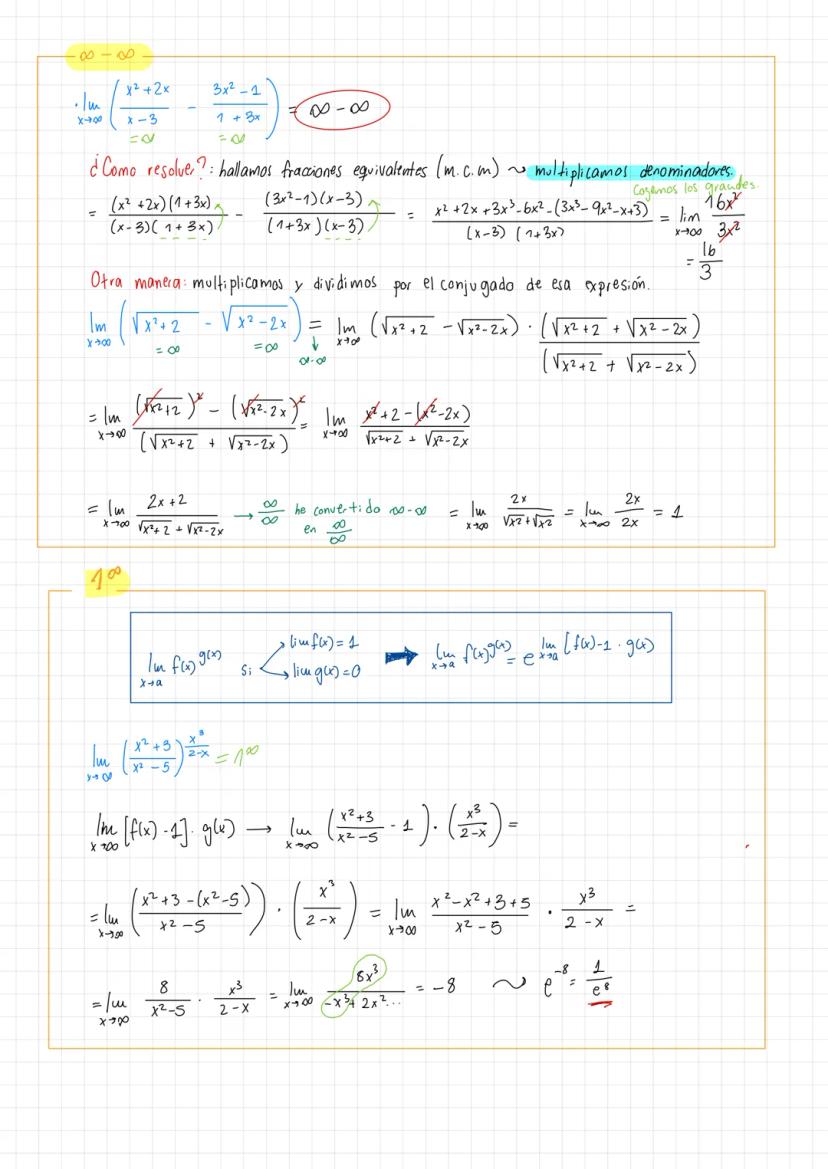 ∞ - ∞
· lim x→∞ ( (x² + 2x)/(x - 3) - (3x² - 1)/(1 + 3x) ) = ∞ - ∞
= ∞ = ∞
¿Como resolver?: hallamos fracciones equivalentes (m.c.m) ~ multiplicamos denominadores.
Cogemos los grandes.
= (x² + 2x)(1 + 3x)/(x - 3)(1 + 3x) - (3x² - 1)(x - 3)/(1 + 3x)(x - 3) = x² + 2x + 3x³ - 6x² - (3x³ - 9x² - x + 3)/(x - 3)(1 + 3x) = lim x→∞ 16x²/3x²
= 16/3
Otra manera: multiplicamos y dividimos por el conjugado de esa expresión.
lim x→∞ ( √x² + 2 - √x² - 2x ) = lim x→∞ (√x² + 2 - √x² - 2x) · (√x² + 2 + √x² - 2x)/(√x² + 2 + √x² - 2x)
= ∞ = ∞ ↓ ∞-∞
= lim x→∞ (√x² + 2)² - (√x² - 2x)²/(√x² + 2 + √x² - 2x) = lim x→∞ x² + 2 - (x² - 2x)/√x² + 2 + √x² - 2x
= lim x→∞ 2x + 2/√x² + 2 + √x² - 2x → ∞/∞ he convertido ∞-∞ en ∞/∞ = lim x→∞ 2x/√x² + √x² = lim x→∞ 2x/2x = 1
1^∞
lim x→a f(x)^g(x) Si lim f(x) = 1 lim g(x) = 0 ➡ lim x→a f(x)^g(x) = e^lim x→a [f(x) - 1 · g(x)
lim x→∞ (x² + 3/x² - 5)^x³/2-x = 1^∞
lim x→∞ [f(x) - 1] · g(x) → lim x→∞ (x² + 3/x² - 5 - 1) · (x³/2 - x) =
= lim x→∞ (x² + 3 - (x² - 5)/x² - 5) · (x³/2 - x) = lim x→∞ x² - x² + 3 + 5/x² - 5 · x³/2 - x =
= lim x→∞ 8/x² - 5 · x³/2 - x = lim x→∞ 8x³/-x³ + 2x² ... = -8 ~ e^-8 = 1/e^8